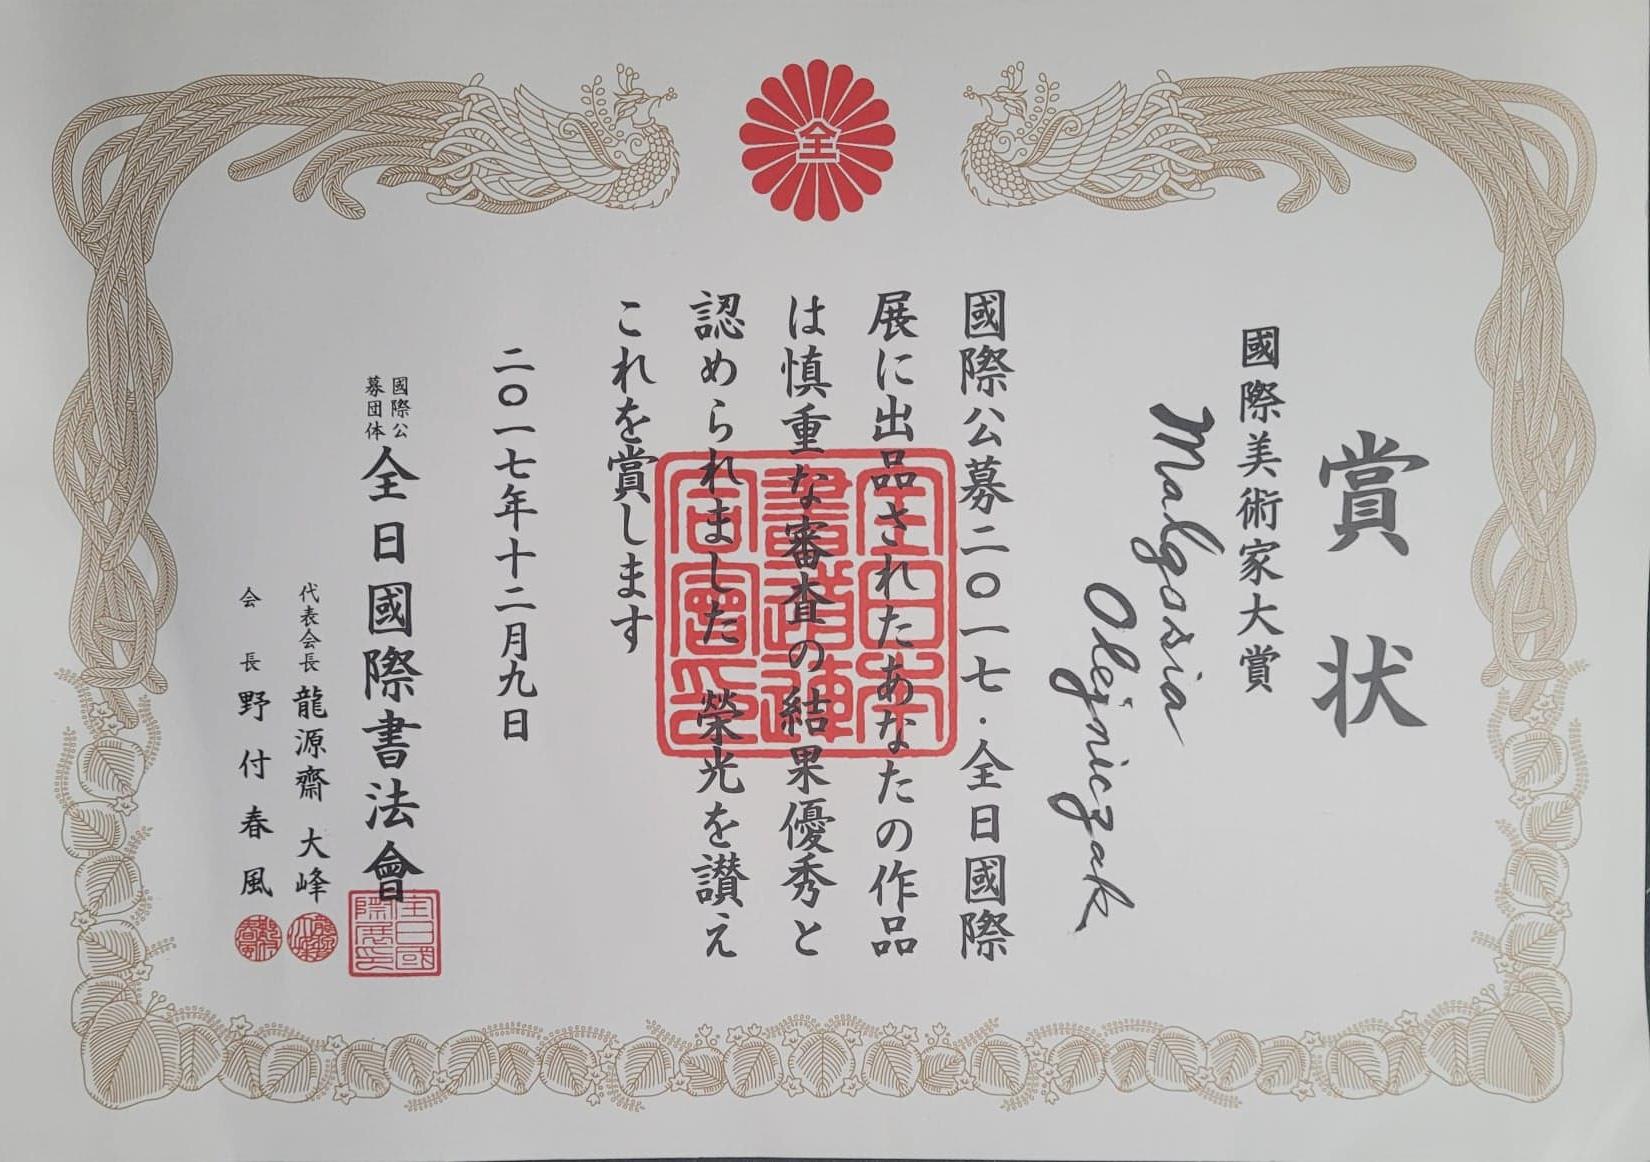 全
賞状
國際美術家大賞
Malgosia
Olejniczak
國際公募二〇一七・全日國際
展に出品されたあなたの作品
は慎重な審査の結果優秀と
認められました 榮光を讃え
これを賞します
二〇一七年十二月九日
國際公
募団体
全日國際書法會
代表会長 龍源齋 大峰
会長 野付春風